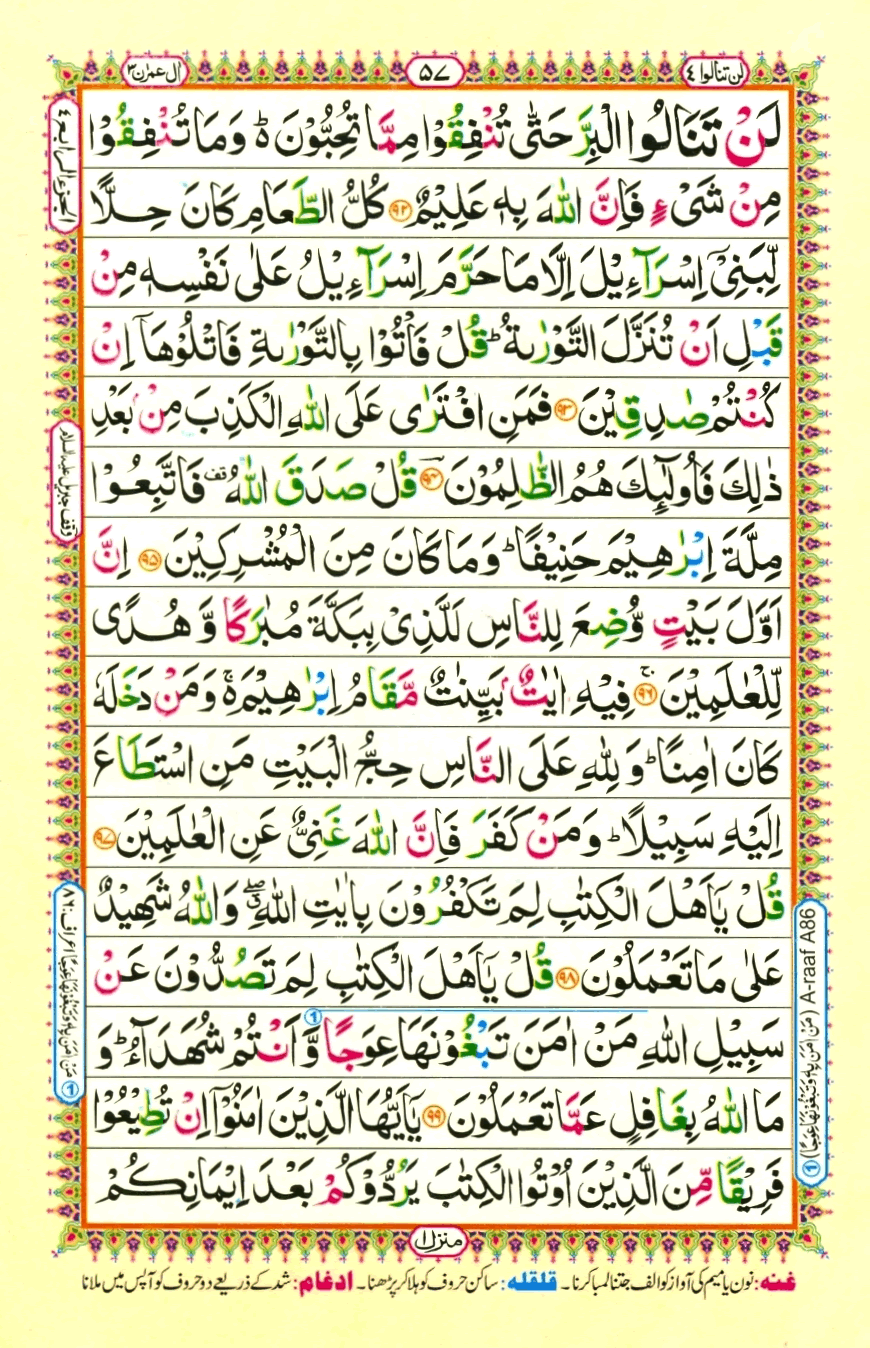 لن تنالوا ٤
٥٧
اٰل عمرٰن ٣
لَنْ تَنَالُوا الْبِرَّ حَتّٰى تُنْفِقُوْا مِمَّا تُحِبُّوْنَ ؕ وَمَا تُنْفِقُوْا
مِنْ شَىْءٍ فَاِنَّ اللّٰهَ بِهٖ عَلِيْمٌ ﴿۹۲﴾ كُلُّ الطَّعَامِ كَانَ حِلًّا
لِّبَنِىْٓ اِسْرَآءِيْلَ اِلَّا مَا حَرَّمَ اِسْرَآءِيْلُ عَلٰى نَفْسِهٖ مِنْ
قَبْلِ اَنْ تُنَزَّلَ التَّوْرٰىةُ ؕ قُلْ فَاْتُوْا بِالتَّوْرٰىةِ فَاتْلُوْهَاۤ اِنْ
كُنْتُمْ صٰدِقِيْنَ ﴿۹۳﴾ فَمَنِ افْتَرٰى عَلَى اللّٰهِ الْكَذِبَ مِنْۢ بَعْدِ
ذٰلِكَ فَاُولٰٓئِكَ هُمُ الظّٰلِمُوْنَ ﴿۹۴﴾ قُلْ صَدَقَ اللّٰهُ قف فَاتَّبِعُوْا
مِلَّةَ اِبْرٰهِيْمَ حَنِيْفًا ؕ وَمَا كَانَ مِنَ الْمُشْرِكِيْنَ ﴿۹۵﴾ اِنَّ
اَوَّلَ بَيْتٍ وُّضِعَ لِلنَّاسِ لَلَّذِىْ بِبَكَّةَ مُبٰرَكًا وَّهُدًى
لِّلْعٰلَمِيْنَ ﴿۹۶﴾ۚ فِيْهِ اٰيٰتٌۢ بَيِّنٰتٌ مَّقَامُ اِبْرٰهِيْمَ ۚ وَمَنْ دَخَلَهٗ
كَانَ اٰمِنًا ؕ وَلِلّٰهِ عَلَى النَّاسِ حِجُّ الْبَيْتِ مَنِ اسْتَطَاعَ
اِلَيْهِ سَبِيْلًا ؕ وَمَنْ كَفَرَ فَاِنَّ اللّٰهَ غَنِىٌّ عَنِ الْعٰلَمِيْنَ ﴿۹۷﴾
قُلْ يٰۤاَهْلَ الْكِتٰبِ لِمَ تَكْفُرُوْنَ بِاٰيٰتِ اللّٰهِ ۖ وَاللّٰهُ شَهِيْدٌ
عَلٰى مَا تَعْمَلُوْنَ ﴿۹۸﴾ قُلْ يٰۤاَهْلَ الْكِتٰبِ لِمَ تَصُدُّوْنَ عَنْ
سَبِيْلِ اللّٰهِ مَنْ اٰمَنَ تَبْغُوْنَهَا عِوَجًا ① وَّاَنْتُمْ شُهَدَآءُ ؕ وَ
مَا اللّٰهُ بِغَافِلٍ عَمَّا تَعْمَلُوْنَ ﴿۹۹﴾ يٰۤاَيُّهَا الَّذِيْنَ اٰمَنُوْۤا اِنْ تُطِيْعُوْا
فَرِيْقًا مِّنَ الَّذِيْنَ اُوْتُوا الْكِتٰبَ يَرُدُّوْكُمْ بَعْدَ اِيْمَانِكُمْ
الجزء الرابع ٤
وقف جبريل عليه السلام
① مَنْ اٰمَنَ بِهٖ وَتَبْغُوْنَهَا عِوَجًا اعراف: ٨٦
① (مَنْ اٰمَنَ بِهٖ وَتَبْغُوْنَهَا عِوَجًا) A-raaf A86
منزل ١
غنه: نون یا میم کی آواز کو الف جتنا لمبا کرنا۔ قلقله: ساکن حروف کو ہلا کر پڑھنا۔ ادغام: شد کے ذریعے دو حروف کو آپس میں ملانا